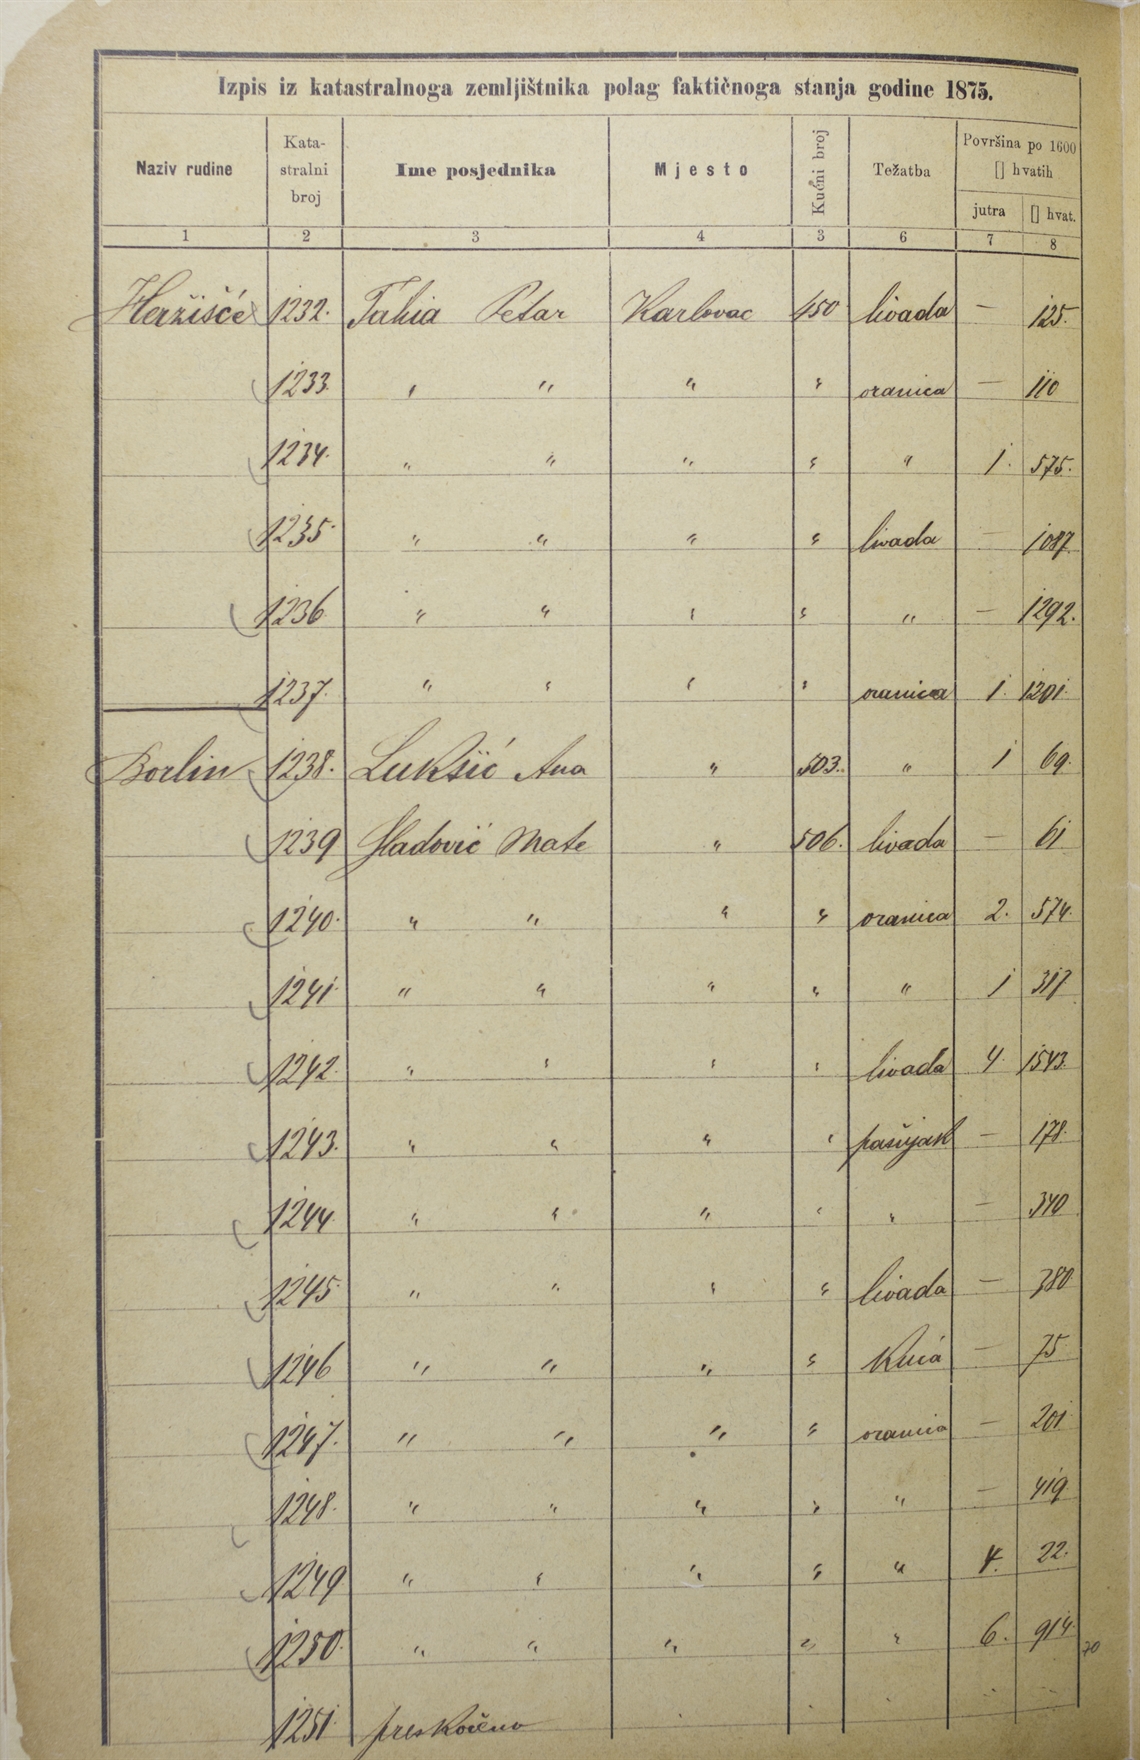 Izpis iz katastralnoga zemljištnika polag faktičnoga stanja godine 1875.
Naziv rudine Kata-stralni broj Ime posjednika Mjesto Kućni broj Težatba Površina po 1600 [] hvatih
jutra [] hvat.
1 2 3 4 3 6 7 8
Heržišće 1232. Tahia Petar Karlovac 450 livada — 125.
1233. " " " " oranica — 110
1234. " " " " " 1. 575.
1235. " " " " livada — 1087.
1236 " " " " " — 1292.
1237. " " " " oranica 1. 1201.
Borlin 1238. Lukšić Ana " 503. " 1 69.
1239 Gladović Mate " 506. livada — 61
1240. " " " " oranica 2. 574.
1241. " " " " " 1 317
1242. " " " " livada 4. 1543.
1243. " " " " pašnjak — 178.
1244 " " " " " — 340
1245. " " " " livada — 380
1246 " " " " Kuća — 75
1247. " " " " oranica — 201
1248. " " " " " — 419
1249 " " " " " 4. 22.
1250. " " " " " 6. 914.
70
1251. preskočeno